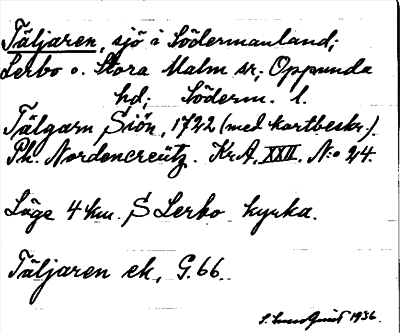 Täljaren, sjö i Södermanland;
Lerbo o. Stora Malm sr; Oppunda
hd; Söderm. l.
Tälgarn Siön, 1722 (med kartbeskr.)
Ph. Nordencreütz. KrA, XXII. N:o 24.
Läge 4 km. S Lerbo kyrka.
Täljaren ek, G.66.
1936.